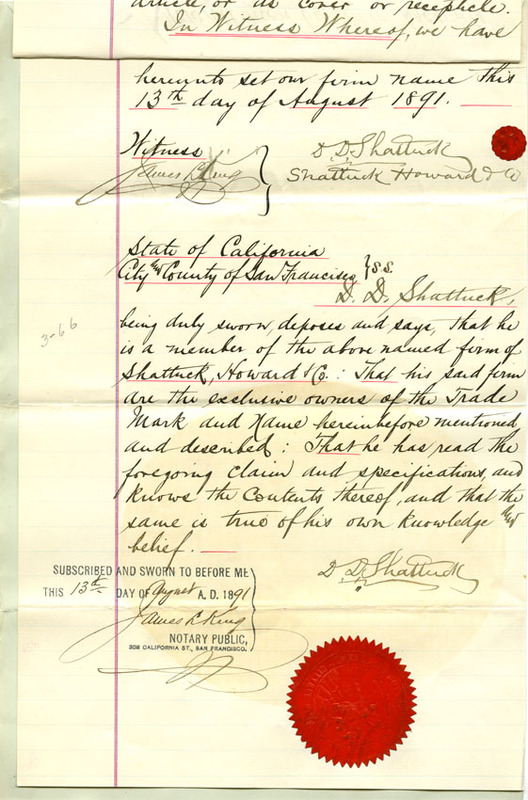 article, or as cover or recepticle.
In Witness Whereof, we have
hereunto set our firm name this
13th day of August 1891.
Witness
D. D. Shattuck
James L King
Shattuck Howard & Co
State of California
City and County of San Francisco } s.s.
D. D. Shattuck,
being duly sworn, deposes and says, that he
is a member of the above named firm of
Shattuck, Howard & Co.: That his said firm
are the exclusive owners of the Trade
Mark and Name hereinbefore mentioned
and described: That he has read the
foregoing claim and specifications, and
knows the contents thereof, and that the
same is true of his own knowledge and
belief.
D. D. Shattuck
3-66
SUBSCRIBED AND SWORN TO BEFORE ME
THIS 13th DAY OF August A. D. 1891
James L King
NOTARY PUBLIC,
308 CALIFORNIA ST., SAN FRANCISCO.